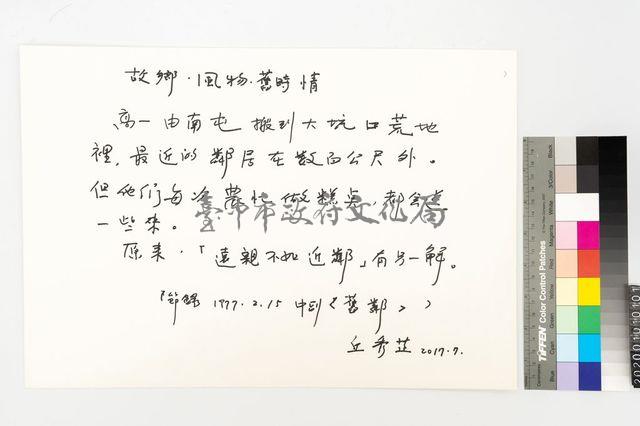 故鄉·風物·舊時情
高一由南屯 搬到大坑口荒地
裡，最近的鄰居在數百公尺外。
但他們每次農忙做糕点，都會
一些來。
原來，「遠親不如近鄰」有另一解。
節錄 1997.2.15 中副《舊鄰》
丘秀芷 2017.7.
臺中市政府文化局
Black
3/Color
White
Magenta
Red
Yellow
Green
Cyan
Blue
TIFFEN Color Control Patches